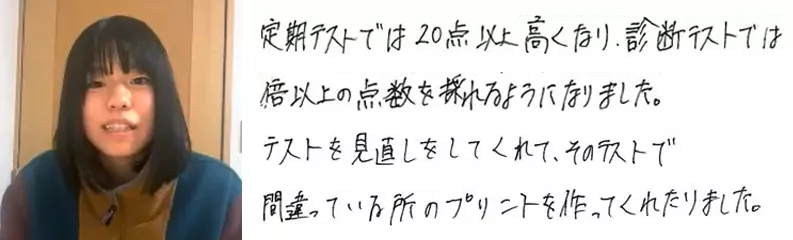 定期テストでは20点以上高くなり、診断テストでは
倍以上の点数を採れるようになりました。
テストを見直しをしてくれて、そのテストで
間違っている所のプリントを作ってくれたりました。